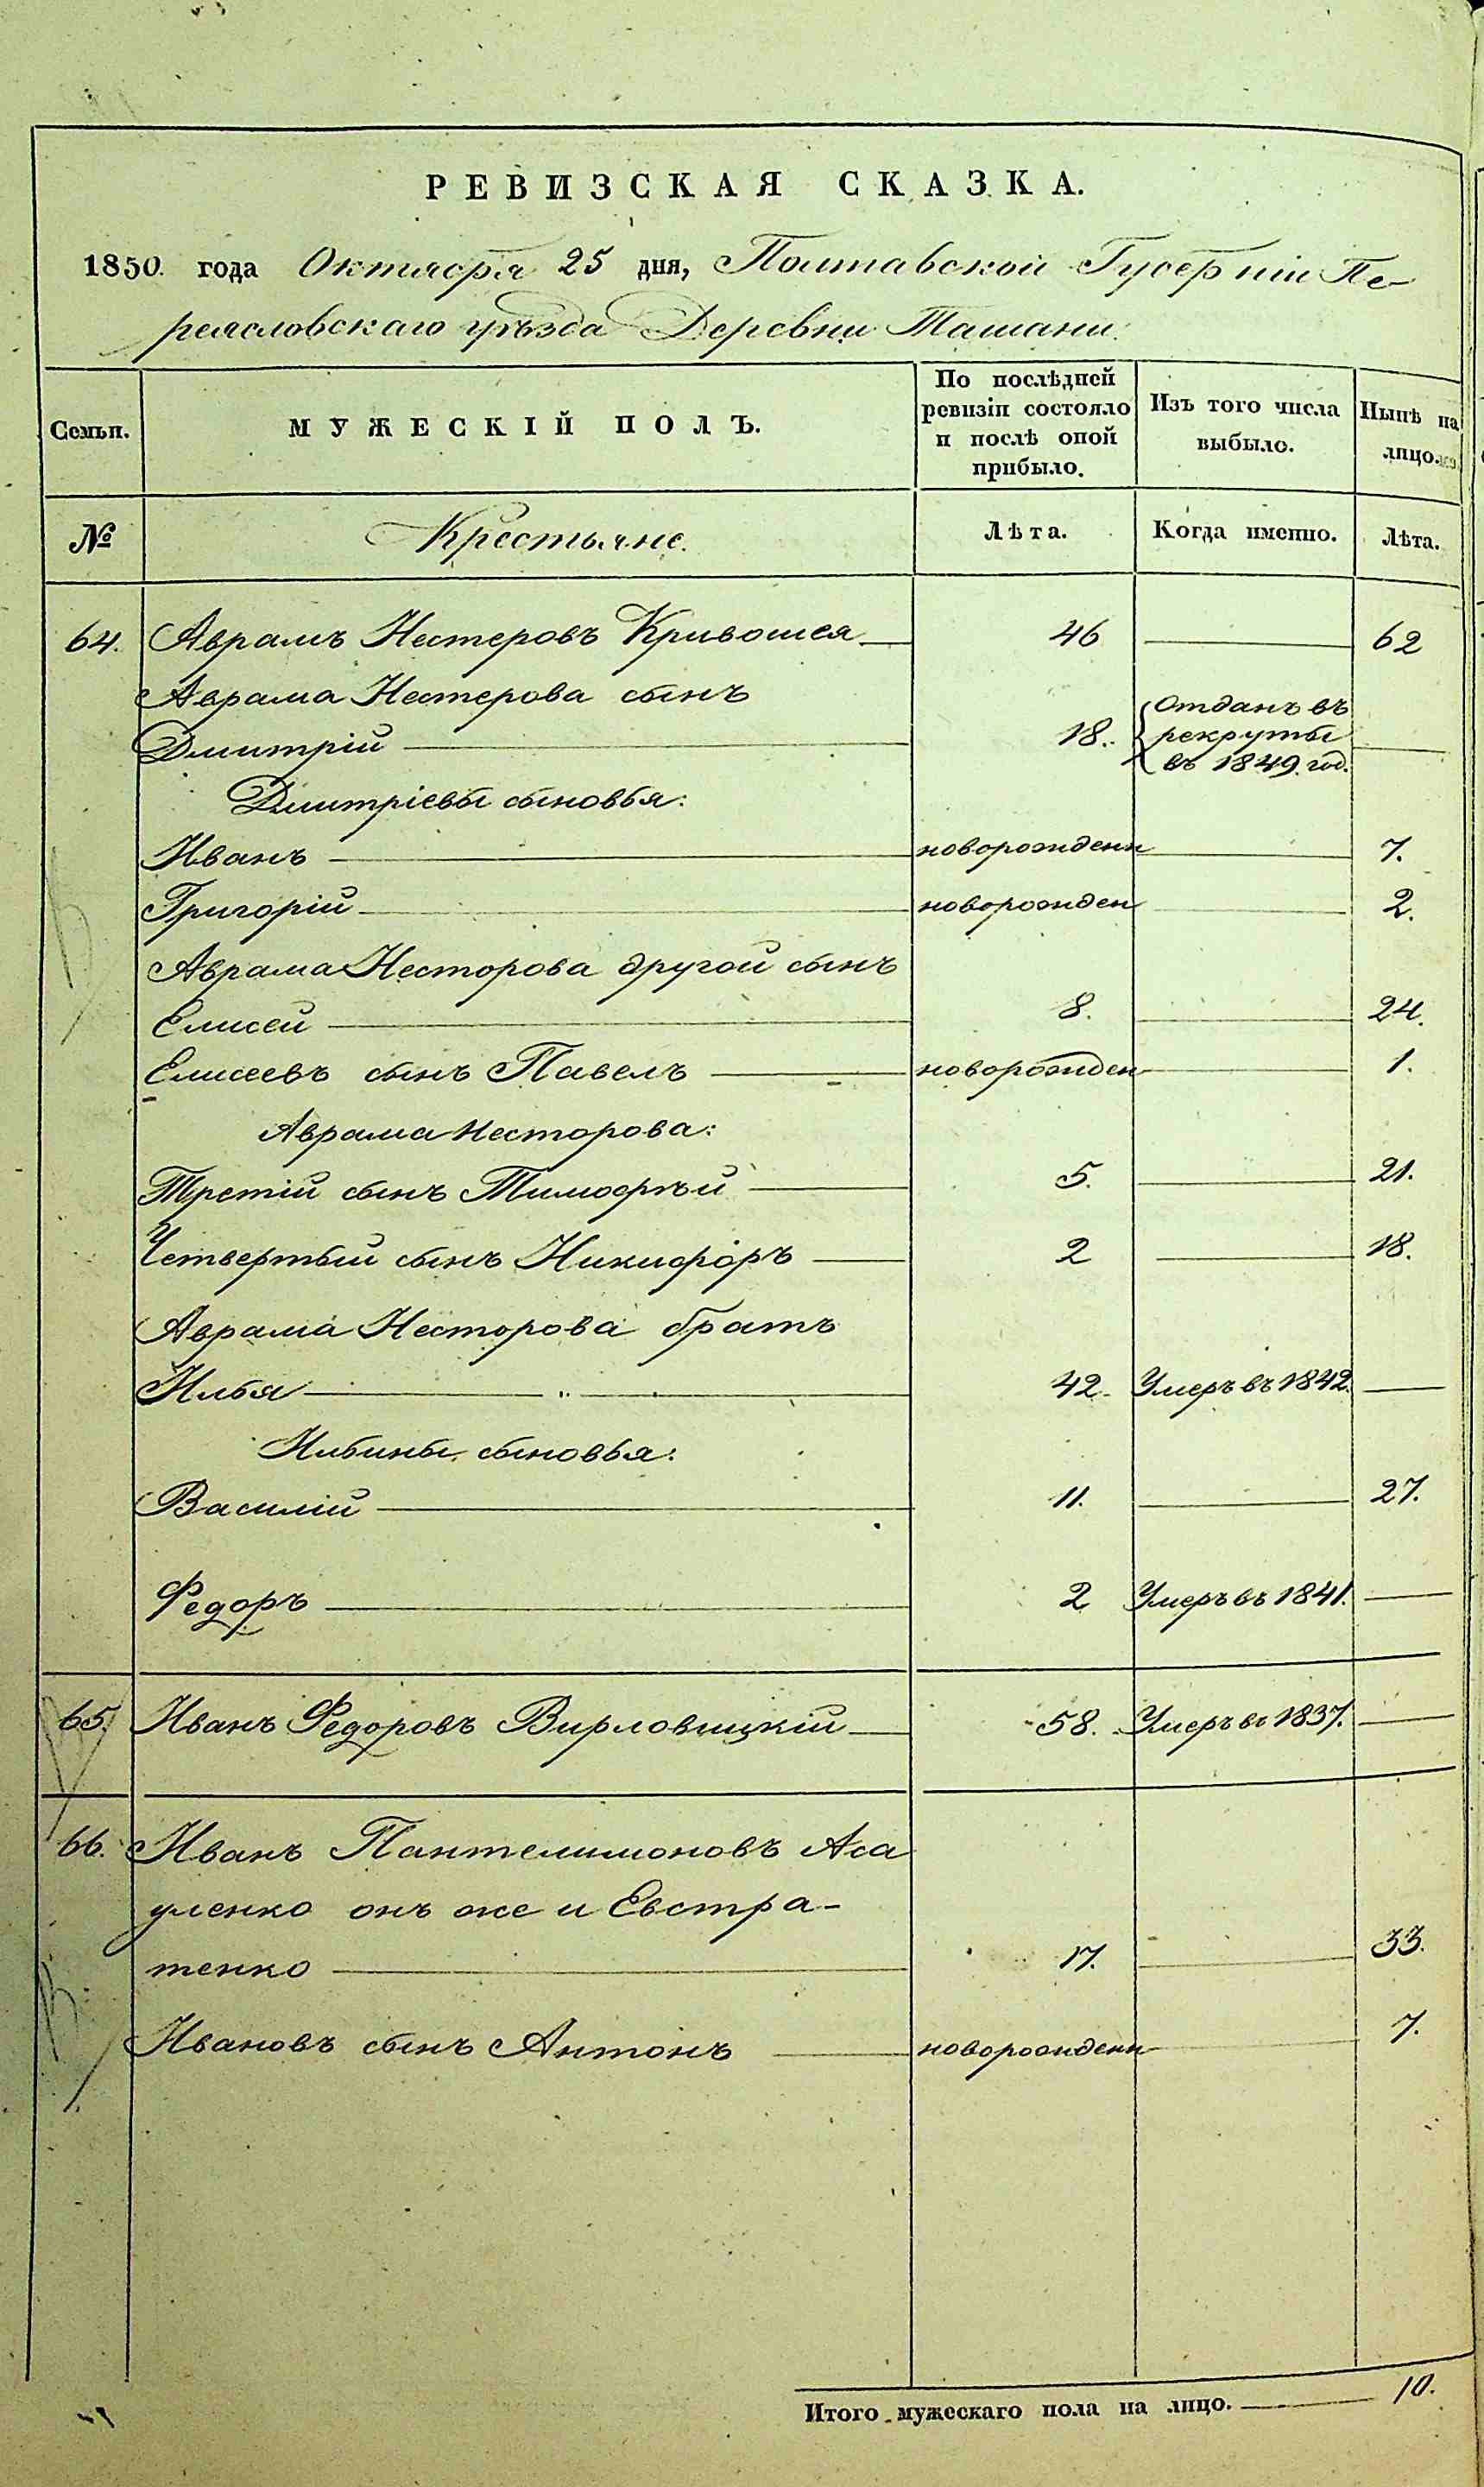 РЕВИЗСКАЯ СКАЗКА.
1850. года Октября 25 дня, Полтавской Губерніи Пе-
реясловскаго уѣзда Деревни Ташани.
Семьи. МУЖЕСКІЙ ПОЛЪ. По послѣдней ревизіи состояло и послѣ оной прибыло. Изъ того числа выбыло. Нынѣ на лицо.
№ Крестьяне. Лѣта. Когда именно. Лѣта.
64. Аврамъ Нестеровъ Кривошея 46 62
Аврама Нестерова сынъ
Дмитрій 18. Отданъ въ рекруты въ 1849. год.
Дмитріевы сыновья:
Иванъ новорожденн 7.
Григорій новорожден 2.
Аврама Несторова другой сынъ
Елисей 8. 24.
Елисеевъ сынъ Павелъ новорожден 1.
Аврама Несторова:
Третій сынъ Тимофѣй 5. 21.
Четвертый сынъ Никифоръ 2 18.
Аврама Несторова братъ
Илья 42. Умеръ въ 1842.
Ильины сыновья:
Василій 11. 27.
Федоръ 2 Умеръ въ 1841.
65. Иванъ Федоровъ Вирловицкій 58. Умеръ въ 1837.
66. Иванъ Пантелимоновъ Аса
уленко онъ же и Евстра-
тенко 17. 33.
Ивановъ сынъ Антонъ новорожденн 7.
Итого мужескаго пола на лицо. 10.